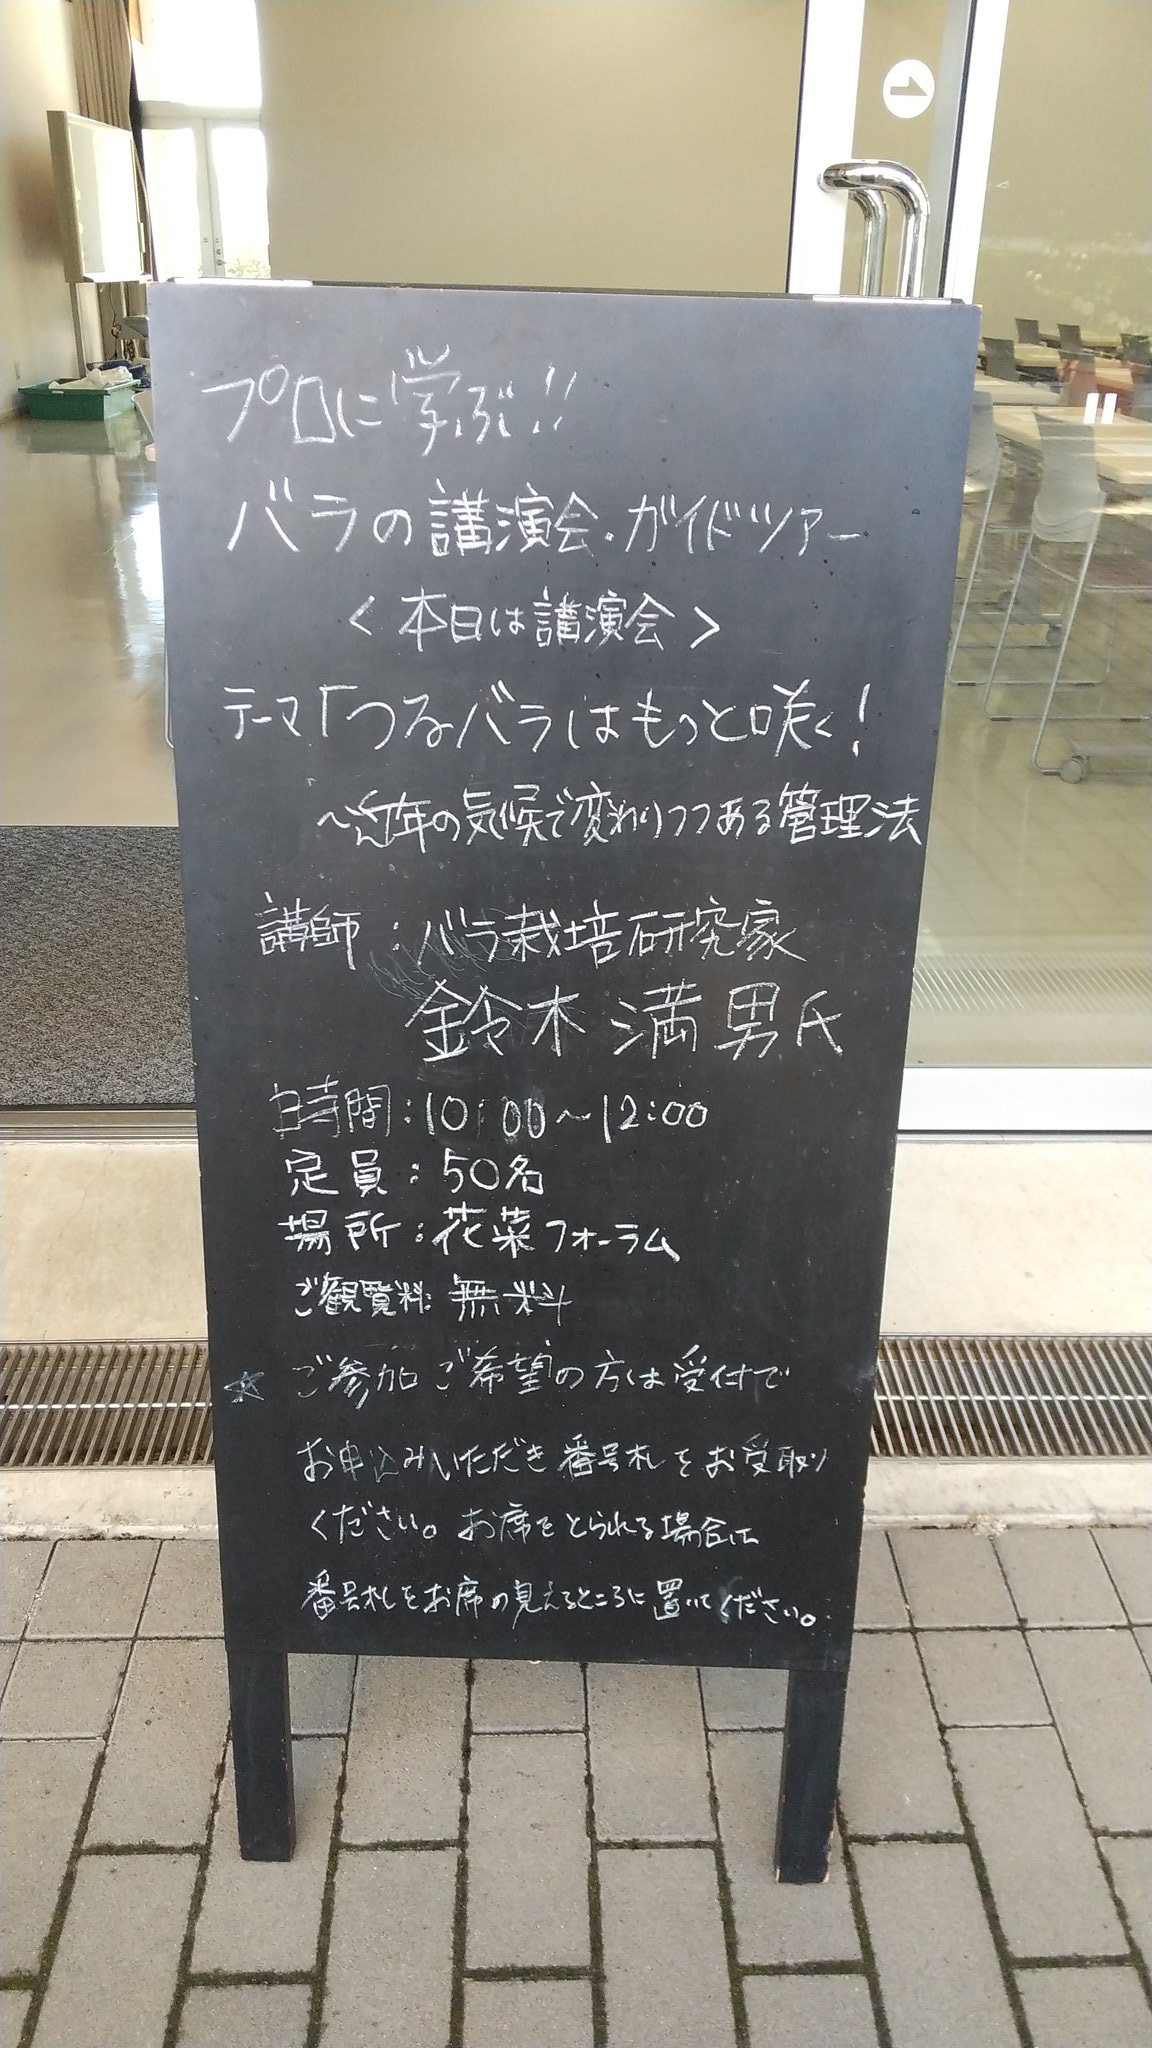 プロに学ぶ!!
バラの講演会・ガイドツアー
<本日は講演会>
テーマ「つるバラはもっと咲く!
〜近年の気候で変わりつつある管理法
講師:バラ栽培研究家
鈴木満男氏
時間:10:00〜12:00
定員:50名
場所:花菜フォーラム
ご観覧料:無料
☆ご参加ご希望の方は受付で
お申込みいただき番号札をお受取り
ください。お席をとられる場合は
番号札をお席の見えるところに置いてください。
1